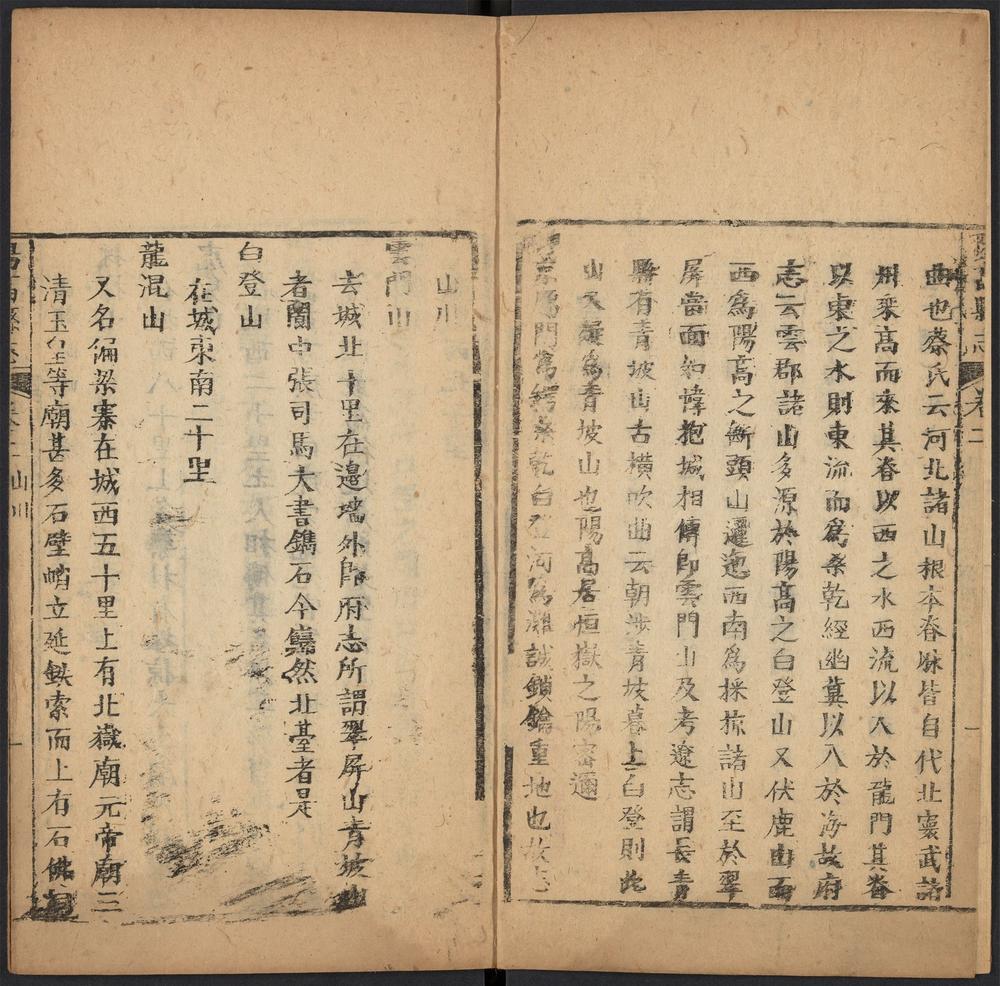 陽高縣志 卷二 一
曲也蔡氏云河北諸山根本脊脉皆自代北寰武諸
州乘高而來其脊以西之水西流以入於龍門其脊
以東之水則東流而爲桑乾經幽冀以入於海故府
志云雲郡諸山多源於陽高之白登山又伏鹿山而
西爲陽高之斷頭山邐迤西南爲採掠諸山至於翠
屏當面如幃抱城相傳即雲門山及考遼志謂長青
縣有青坡山古橫吹曲云朝涉青坡暮上白登則此
山又疑爲青坡山也陽高居恒嶽之陽密邇
京鴈門爲桑乾白登河爲誠鎖鑰重地也故志
山川
雲門山
去城北十里在邊墻外即府志所謂翠屏山青坡山
者閫中張司馬大書鐫石今巋然北臺者是
白登山
在城東南二十里
龍混山
又名偏梁寨在城西五十里上有北嶽廟元帝廟三
清玉皇等廟甚多石壁峭立延鉄索而上有石佛洞
陽高縣志 卷二 山川 一